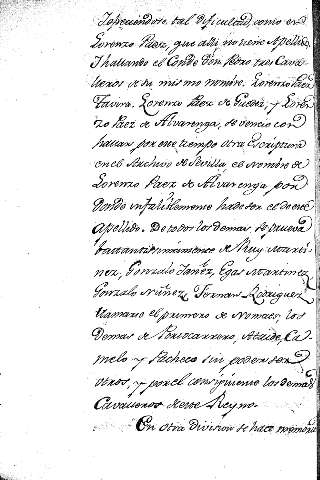 teniendose tal dificultad, como en
Lorenzo Paez, que alli no tiene Apellido,
I hallando el Conde Don Pedro tres Cava-
lleros de su mismo nombre. Lorenzo Paez
Tavera. Lorenzo Paez de y Loren-
zo Paez de Alvarenga, se vencio con
hallar por este tiempo otra Escripcion
en el Archivo de Sevilla el Nombre de
Lorenzo Paez de Alvarenga, por
donde infaliblemente hade ser el de este
Apellido. De todos los demas se
de Ruy Marti-
nez, Gonzalo Ianez, Egas Martinez
Gonzalo Nuñez, Fernan Rodriguez
el primero de Nomaes, los
Demas de Portocarrero, Ataide, Ca-
melo y Pacheco sin poder ser
otros, y por el consiguiente los demas
Cavalleros de este Reyno.
En otra Division se hace memoria